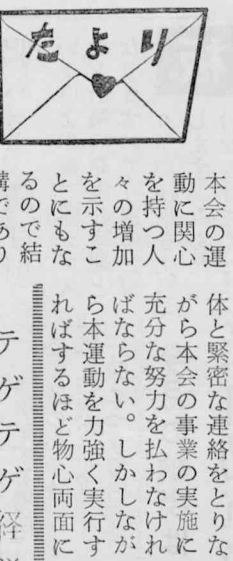 たより
本会の運
動に関心
を持つ人
々の増加
を示すこ
とにもな
るので結
構であり
体と緊密な連絡をとりな
がら本会の事業の実施に
充分な努力を払わなけれ
ばならない。しかしなが
ら本運動を力強く実行す
ればするほど物心両面に
テゲテゲ
経